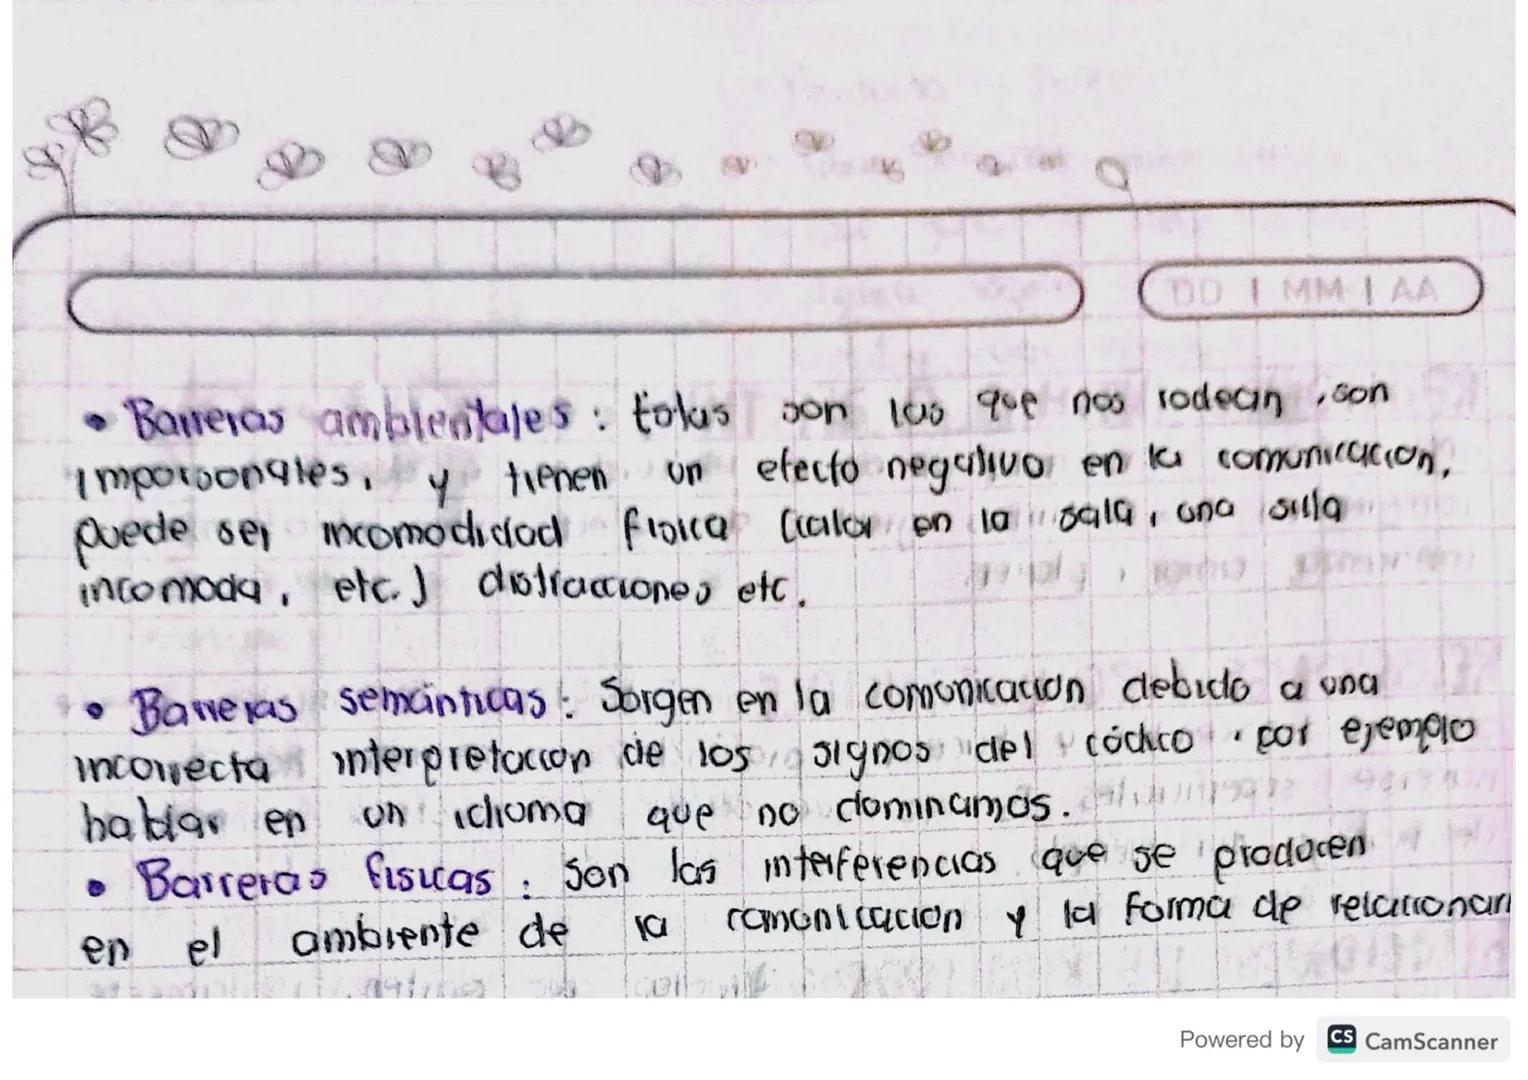 DD | MM | AA
• Barreras ambientales: estas son las que nos rodean, son
impersonales, y tienen un efecto negativo en la comunicación,
puede ser incomodidad física (calor en la sala, una silla
incomoda, etc.) distracciones etc.
• Barreras semánticas: Surgen en la comunicación debido a una
incorrecta interpretación de los signos del códico. por ejemplo
hablar en un idioma que no dominamos.
• Barreras fisicas: Son las interferencias que se producen
en el ambiente de la comunicación y la forma de relacionar
Powered by CS CamScanner